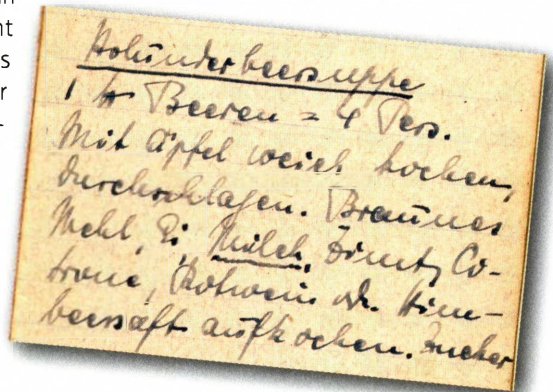 nt
s
r
-
Holünderbeersuppe
1 ℔ Beeren = 4 Pers.
Mit Äpfel weich kochen,
durchschlagen. Braunes
Mehl, Ei, Milch, Zimt, Ci-
trone, Rotwein od. Him-
beersaft aufkochen. Zucker